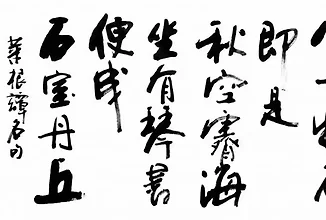 即是
秋空霽海
坐有琴書
便成
石室丹丘
菜根譚名句